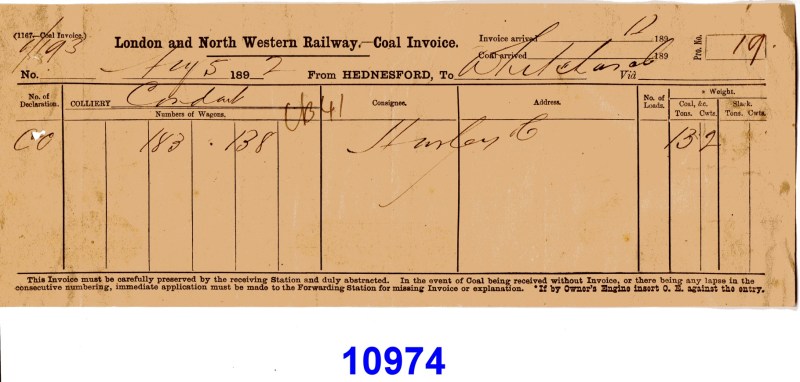 (1167—Coal Invoice.)
London and North Western Railway.—Coal Invoice.
Invoice arrived 12 189
Coal arrived 189
Pro. No. 19
No. 5 1892 From HEDNESFORD, To Whitchurch Viâ
No. of Declaration.
COLLIERY
Numbers of Wagons.
Consignee.
Address.
No. of Loads.
* Weight.
Coal, &c. Slack.
Tons. Cwts. Tons. Cwts.
CO 183 138 13 2
This Invoice must be carefully preserved by the receiving Station and duly abstracted. In the event of Coal being received without Invoice, or there being any lapse in the
consecutive numbering, immediate application must be made to the Forwarding Station for missing Invoice or explanation. *If by Owner's Engine insert O. E. against the entry.
10974